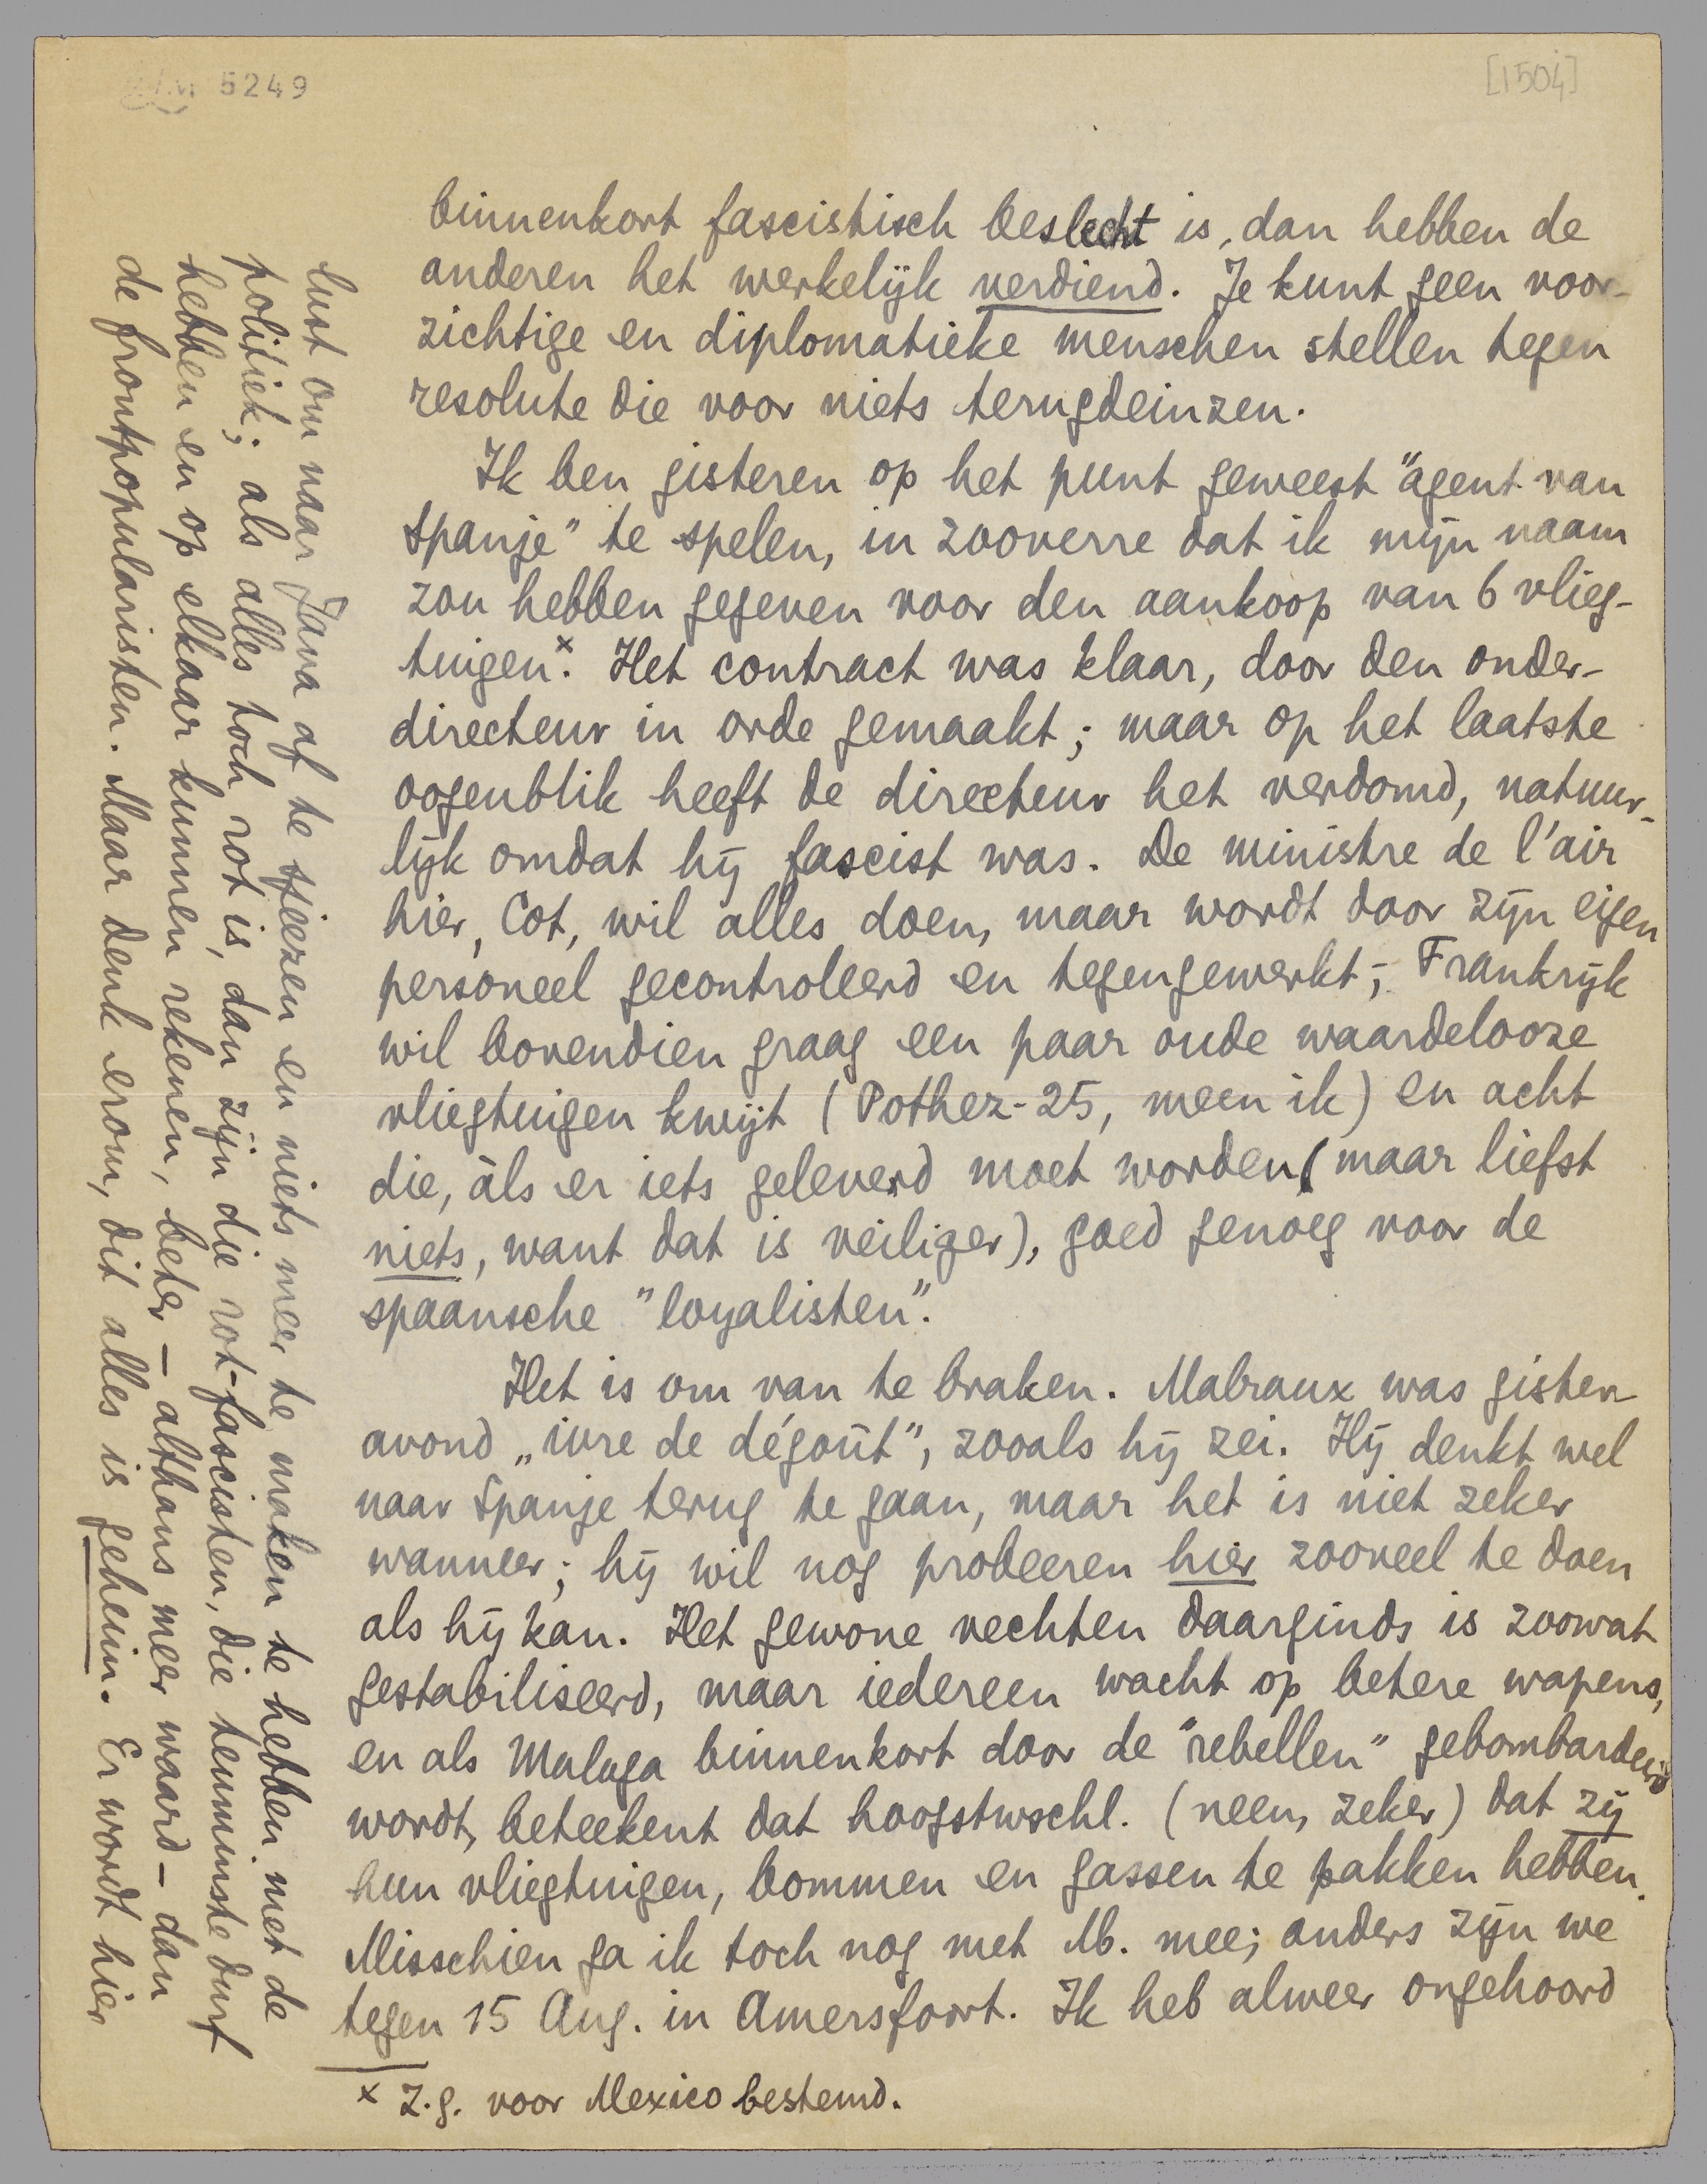 5249
[1504]
binnenkort fascistisch beslecht is, dan hebben de
anderen het werkelijk verdiend. Je kunt geen voor-
zichtige en diplomatieke menschen stellen tegen
resolute die voor niets terugdeinzen.
Ik ben gisteren op het punt geweest "agent van
Spanje" te spelen, in zooverre dat ik mijn naam
zou hebben gegeven voor den aankoop van 6 vlieg-
tuigen x. Het contract was klaar, door den onder-
directeur in orde gemaakt; maar op het laatste
oogenblik heeft de directeur het verdomd, natuur-
lijk omdat hij fascist was. De ministre de l'air
hier, Cot, wil alles doen, maar wordt door zijn eigen
personeel gecontroleerd en tegengewerkt; Frankrijk
wil bovendien graag een paar oude waardelooze
vliegtuigen kwijt (Pothez-25, meen ik) en acht
die, àls er iets geleverd moet worden (maar liefst
niets, want dat is veiliger), goed genoeg voor de
spaansche "loyalisten".
Het is om van te braken. Malraux was gister-
avond „ivre de dégoût", zooals hij zei. Hij denkt wel
naar Spanje terug te gaan, maar het is niet zeker
wanneer; hij wil nog probeeren hier zooveel te doen
als hij kan. Het gewone vechten daarginds is zoowat
gestabiliseerd, maar iedereen wacht op betere wapens,
en als Malaga binnenkort door de "rebellen" gebombardeerd
wordt, beteekent dat hoogstwschl. (neen, zeker) dat zij
hun vliegtuigen, bommen en gassen te pakken hebben.
Misschien ga ik toch nog met M. mee; anders zijn we
tegen 15 Aug. in Amersfoort. Ik heb alweer ongehoord
x Z.g. voor Mexico bestemd.
lust om naar Java af te sjeezen en niets meer te maken te hebben met de
politiek; als alles toch rot is, dan zijn die rot-fascisten, die tenminste durf
hebben en op elkaar kunnen rekenen, beter – althans meer waard – dan
de frontpopularisten. Maar denk erom, dit alles is geheim. Er wordt hier